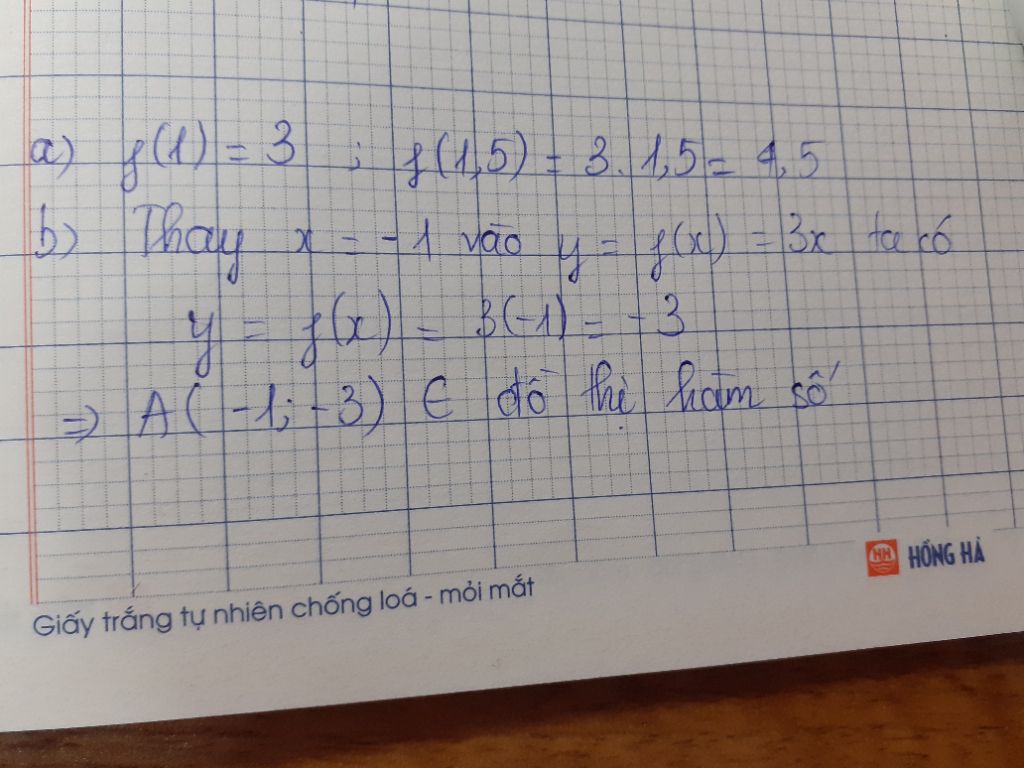 a) f(1) = 3 ; f(1,5) = 3. 1,5 = 4,5
b) Thay x = -1 vào y = f(x) = 3x ta có
y = f(x) = 3(-1) = -3
⇒ A( -1; -3) ∈ đồ thị hàm số
HH HỒNG HÀ
Giấy trắng tự nhiên chống loá - mỏi mắt